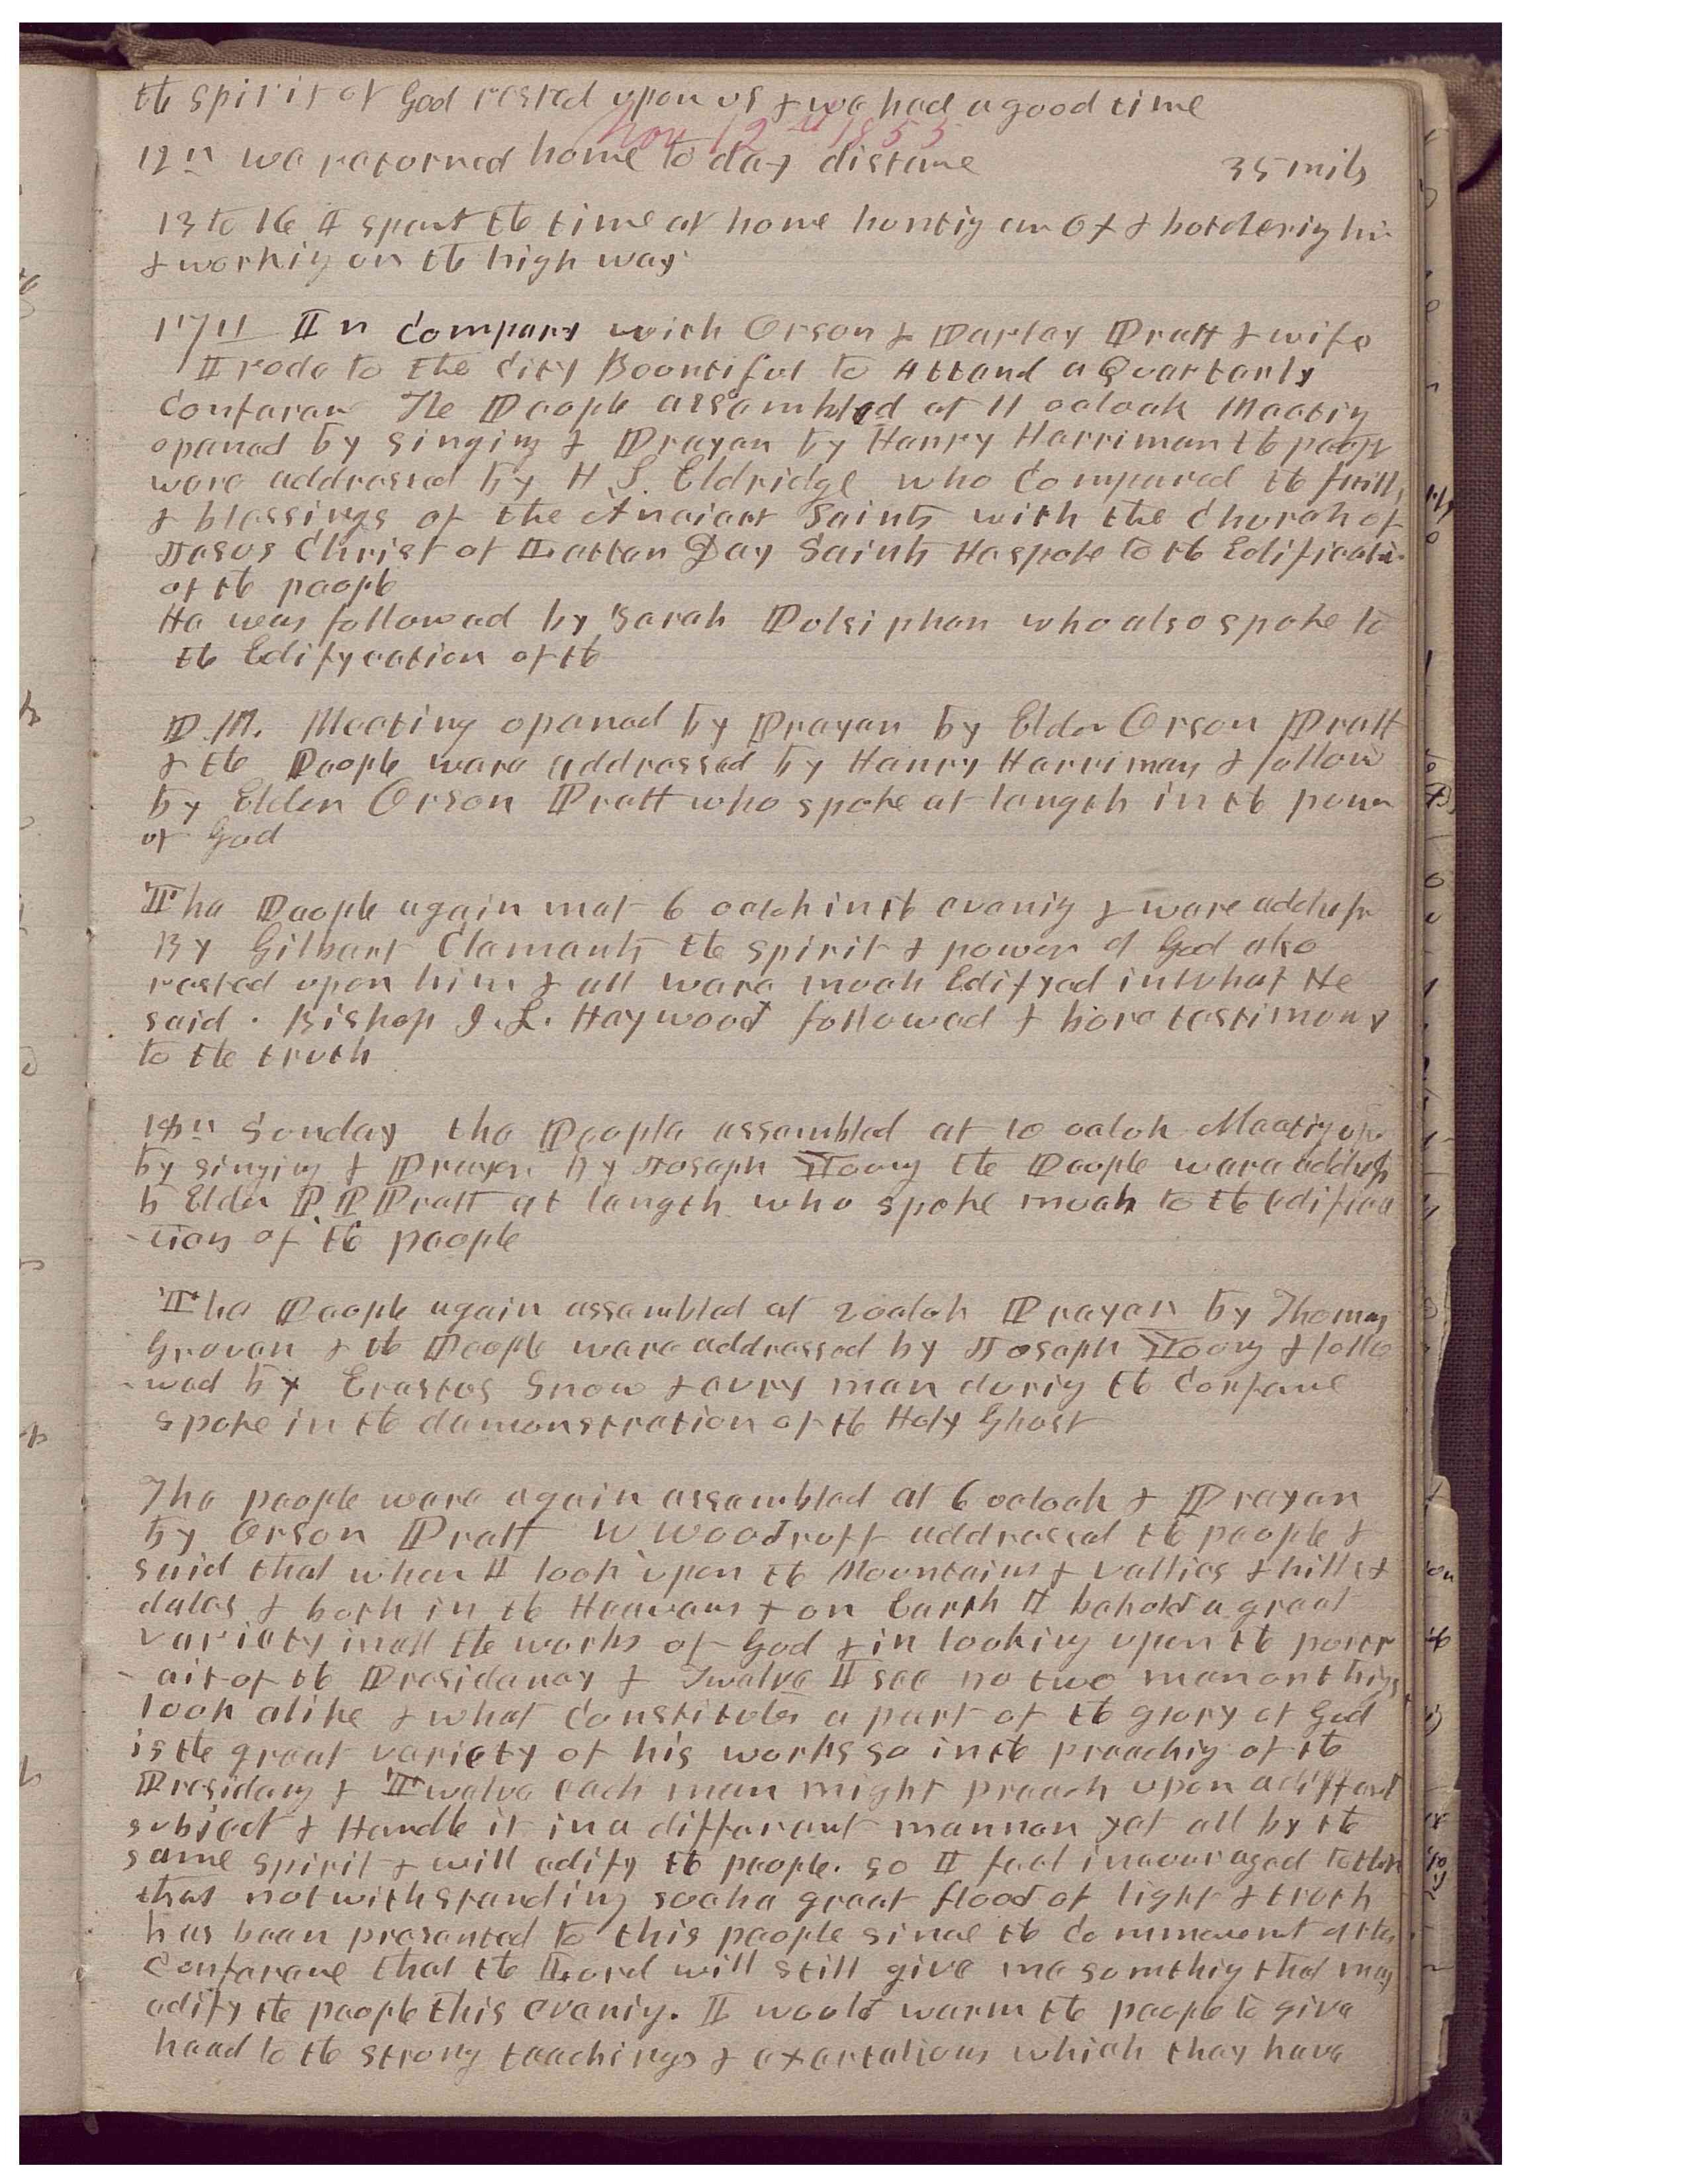 the spirit of God rested upon us & we had a good time
Nov 12th 1855
12th we returned home to day distance 35 mils
13 to 16 I spent the time at home hunting an Ox & butchering him
& working on the high way
17th In Company with Orson & Parley Pratt & wife
I rode to the City Bountiful to Attend a Quarterly
Conferenc The People assembled at 11 oclock Meeting
opened by singing & Prayer by Henry Harriman the people
were addressed by H S. Eldridge who Compared the faith
& blessings of the Ancient Saints with the Church of
Jesus Christ of Latter Day Saints He spoke to the Edification
of the people
He was followed by Sarah who also spoke to
the Edifycation of the
P.M. Meeting opened by Prayer by Elder Orson Pratt
& the People were addressed by Henry Harriman & follow
by Elder Orson Pratt who spoke at length in the power
of God
The People again met 6 oclock in the evening & were address
By Gilbert Clements the spirit & power of God also
rested upon him & all were much Edifyed in what He
said. Bishop J. L. Haywood followed & bore testimony
to the truth
18th Sunday the People assembled at 10 oclok Meeting open
by singing & Prayer By Joseph Young the People were address
b Elder P. P. Pratt at length who spoke much to the edifica
-tion of the people
The People again assembled at 2 oclok Prayer by Thomas
Grover & the People were addressed by Joseph Young & follo
-wed by Erastus Snow & evry man during the Conferance
spoke in the demonstration of the Holy Ghost
The people were again assembled at 6 oclock & Prayer
by Orson Pratt W Woodruff addressed the people &
said that when I look upon the Mountains & vallies & hills &
dales & both in the Heavens & on Earth I behold a great
variety in all the works of God & in looking upon the portr
-ait of the Presidency & Twelve I see no two men or things
look alike & what Constitutes a part of the glory of God
is the great variety of his works so in the preaching of the
Presidency & Twelve each man might preach upon a diffrent
subject & Handle it in a different manner yet all by the
same spirit & will edify the people. so I feel incouraged to think
that notwithstanding such a great flood of light & truth
has been presented to this people since the Commencement of the
Conferance that the Lord will still give me somthing that may
edify the people this evening. I would warn the people to give
heed to the strong teachings & exortations which they have